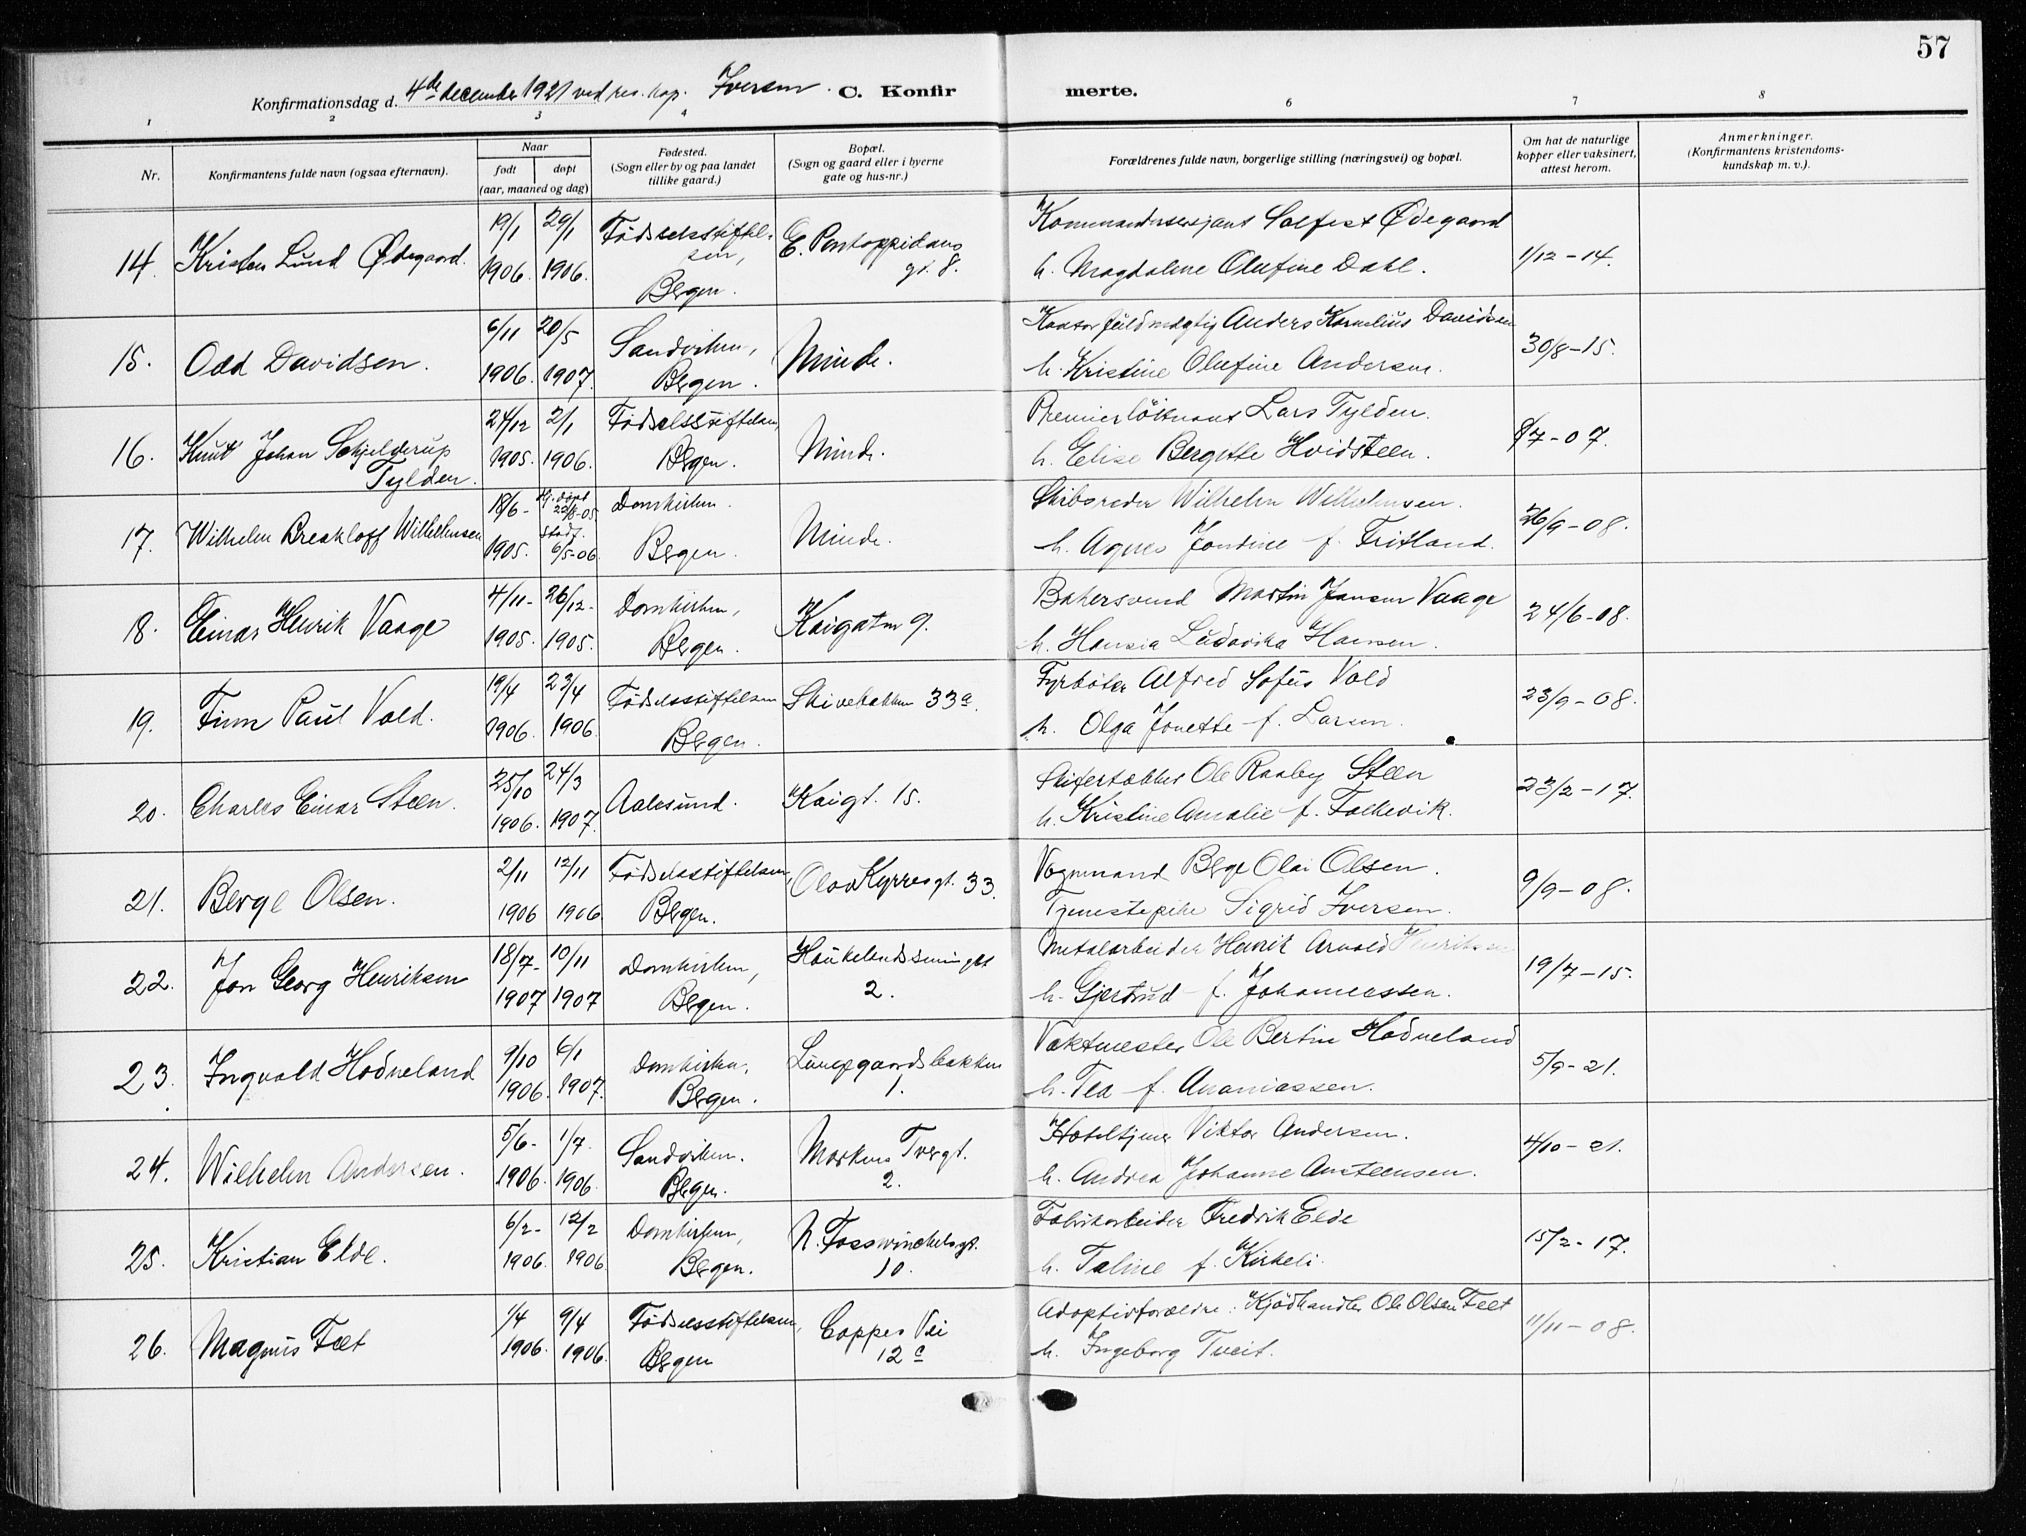 57
Konfirmationsdag d. 4de december 1921 ved res. kap. Iversen. C. Konfirmerte.
1 2 3 4 6 7 8
Nr.
Konfirmantens fulde navn (ogsaa efternavn).
Naar
født døpt
(aar, maaned og dag)
Fødested.
(Sogn eller by og paa landet
tillike gaard.)
Bopæl.
(Sogn og gaard eller i byerne
gate og hus-nr.)
Forældrenes fulde navn, borgerlige stilling (næringsvei) og bopæl.
Om hat de naturlige
kopper eller vaksinert,
attest herom.
Anmerkninger.
(Konfirmantens kristendoms-
kundskap m. v.).
14. Kristen Lund Ødegaard. 19/1 1906. 29/1 1906. Fødselsstiftel-
sen,
Bergen. E. Pontoppidans
gt. 8. Kommandersersjant Solfest Ødegaard
h. Magdaline Olufine Dahl. 1/12-14.
15. Odd Davidsen. 6/11 1906. 20/5 1907. Sandviken,
Bergen. Minde. Kontorfuldmægtig Anders Kornelius Davidsen
h. Kristine Olufine Andersen. 30/8-15.
16. Knut Johan Schjelderup
Tylden. 24/12 1905. 2/1 1906. Fødselsstiftelsen,
Bergen. Minde. Premierløitnant Lars Tylden.
h. Elise Bergitte Hvidsteen. 7-07.
17. Wilhelm Wilhelmsen 18/6- 1905. Hj. døpt
23/8-05.
Stadf.
6/5-06 Domkirken.
Bergen. Minde. Skibsreder Wilhelm Wilhelmsen.
h. Agnes Jondine f. Fritland. 26/9-08.
18. Einar Henrik Vaage 4/11- 1905. 26/12- 1905. Domkirken,
Bergen. Kaigaten 9. Bakersvend Martin Jansen Vaage
h. Hansia Ludovika Hansen. 24/6-08.
19. Finn Paul Vold. 19/4 1906. 23/4 1906. Fødselsstiftelsen
Bergen. Skivebakken 33a. Fyrbøter Alfred Sofus Vold
h. Olga Jonette f. Larsen. 23/9-08.
20. Charles Einar Steen. 25/10 1906. 24/3 1907. Aalesund. Kaigt. 15. Skifertækker Ole Raaby Steen
h. Kristine Amalie f. Falkevik. 23/2-17.
21. Berge Olsen. 2/11 1906 12/11 1906 Fødselsstiftelsen,
Bergen. Olav Kyrresgt. 33. Vognmand Berge Olai Olsen.
Tjenestepike Sigrid Iversen. 9/9-08.
22. Jon Georg Henriksen 18/7- 1907 10/11 1907 Domkirken,
Bergen. 2. Metalarbeider Henrik Arnold Henriksen
h. Gjertrud f. Johannessen. 19/7-15.
23. Ingvald Hodneland 9/10 1906. 6/1 1907. Domkirken,
Bergen. Lungegaardsbakken
1. Vaktmester Ole Bertin Hodneland
h. Tea f. Ananiassen. 5/9-21.
24. Wilhelm Andersen. 5/6- 1906. 1/7. 1906. Sandviken.
Bergen. Markens Tvergt.
2. Hoteltjener Viktor Andersen.
h. Andrea Johanne Austeensen. 4/10-21.
25. Kristian Elde. 6/2- 1906. 12/2 1906 Domkirken,
Bergen. N. Fosswinckelsgt.
10. Fabrikarbeider Fredrik Elde
h. Taline f. Kirkeli. 15/2-17.
26. Magnus Fæt 1/4 1906. 9/4 1906. Fødselsstiftelsen,
Bergen Coppes Vei
12c Adoptivforældre: Kjødhandler Ole Olsen Fæt
h. Ingeborg Tveit. 11/11-08.